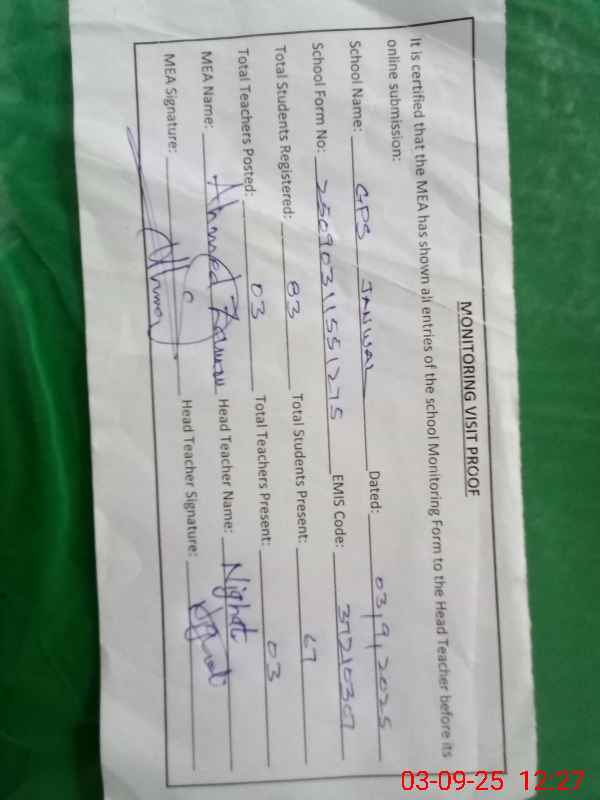 MONITORING VISIT PROOF
It is certified that the MEA has shown all entries of the school Monitoring Form to the Head Teacher before its
online submission:
School Name: GPS JANWAL Dated: 03/9/2025
School Form No: 25090311551275 EMIS Code: 37210307
Total Students Registered: 83 Total Students Present: 67
Total Teachers Posted: 03 Total Teachers Present: 03
MEA Name: Ahmed Head Teacher Name: Nighat
MEA Signature: Head Teacher Signature:
03-09-25 12:27